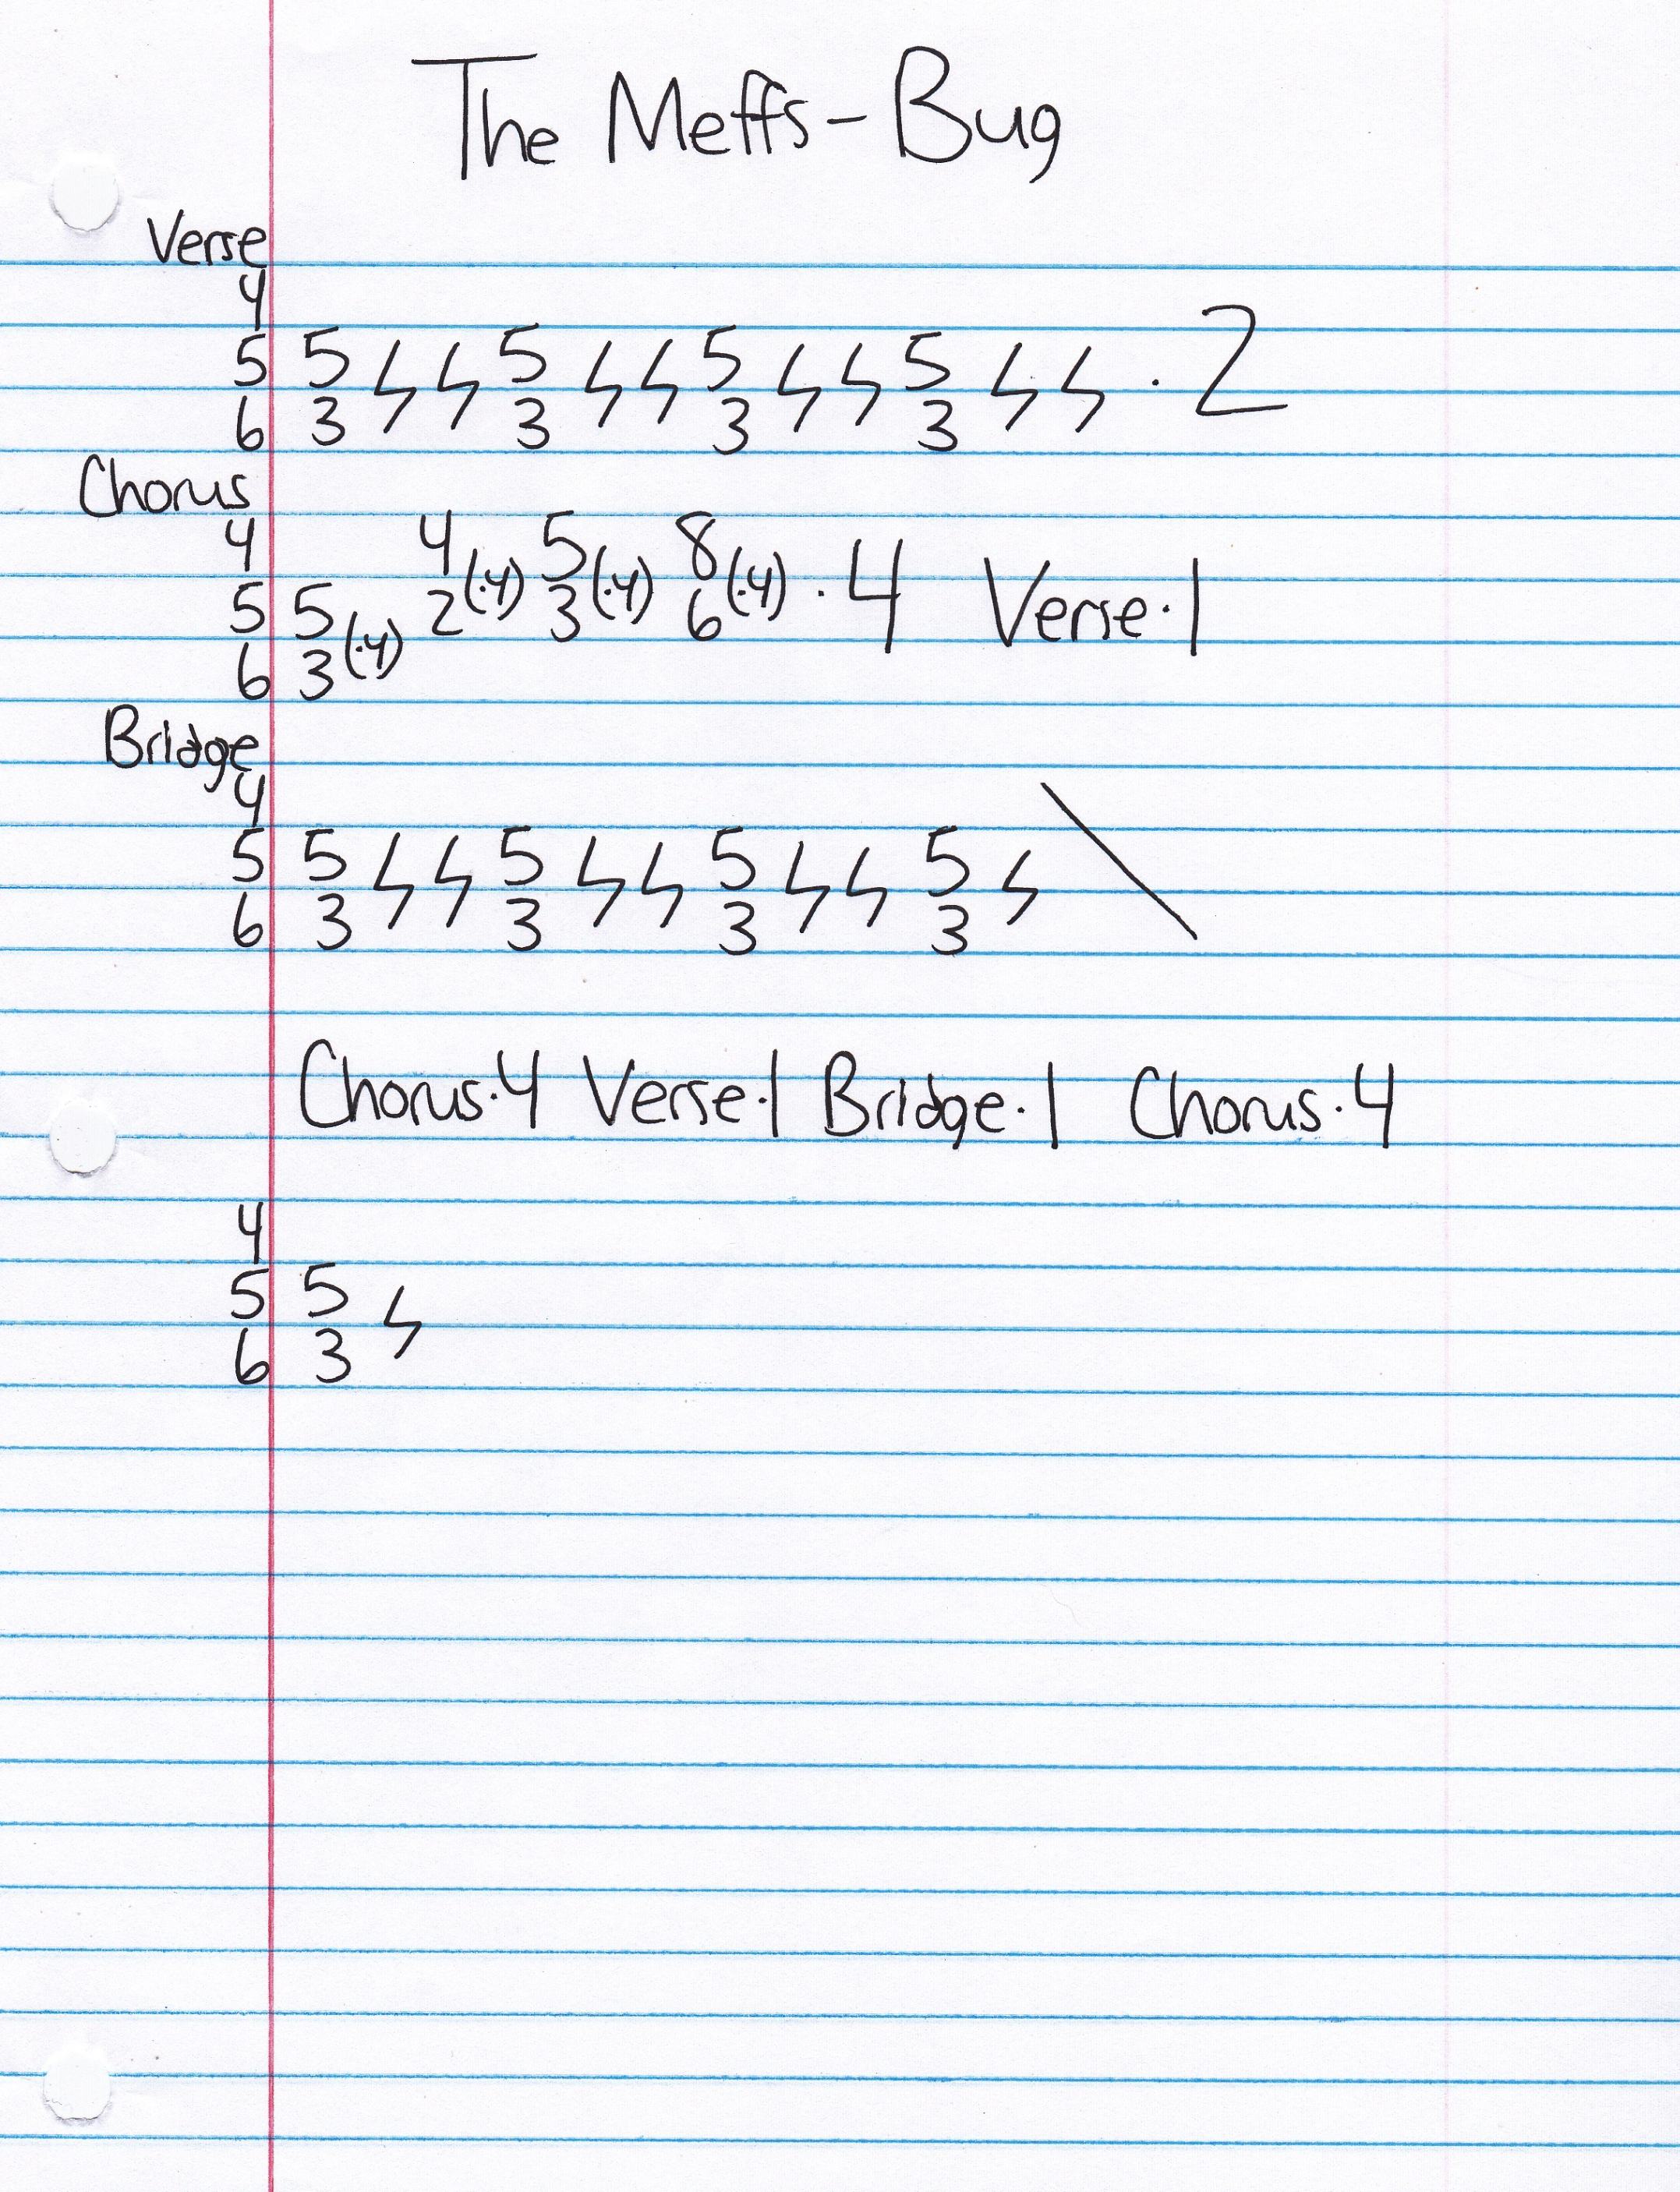 The Meffs - Bug
Verse
4
5 5 ϟ ϟ 5 ϟ ϟ 5 ϟ ϟ 5 ϟ ϟ · 2
6 3 3 3 3
Chorus
4 4(·4) 5(·4) 8(·4) · 4 Verse·1
5 5(·4) 2 3 6
6 3
Bridge
4
5 5 ϟ ϟ 5 ϟ ϟ 5 ϟ ϟ 5 ϟ \
6 3 3 3 3
Chorus·4 Verse·1 Bridge·1 Chorus·4
4
5 5 ϟ
6 3